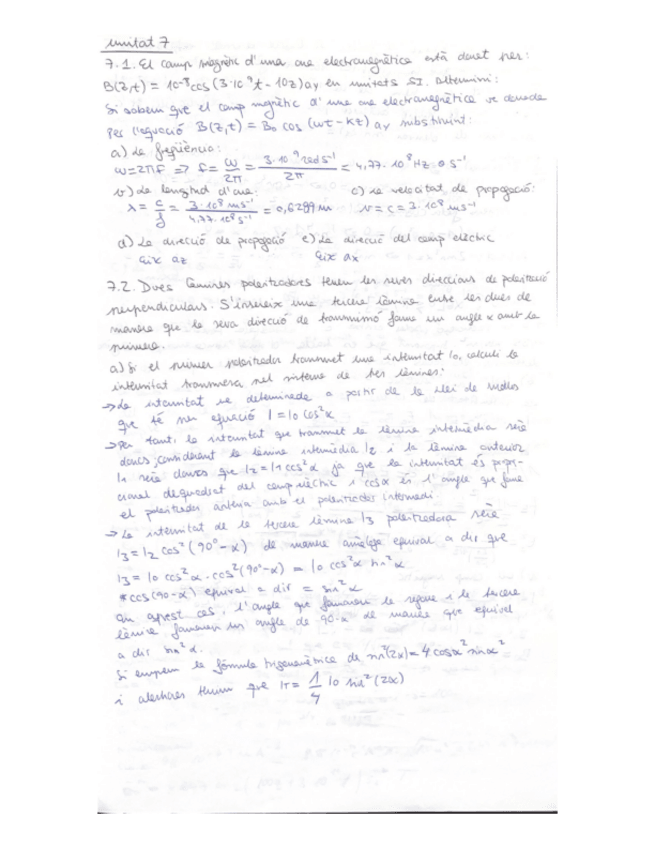 Unitat 7
7.1. El camp magnètic d'una ona electromagnètica està donat per:
B(z,t) = 10⁻⁸ cos (3·10⁹t - 10z) ay en unitats SI. Determini:
Si sabem que el camp magnètic d'una ona electromagnètica ve donada
per l'equació B(z,t) = B₀ cos (wt - kz) ay substituint:
a) La freqüència:
ω=2πf => f = ω/2π = 3·10⁹ rad s⁻¹/2π = 4,77·10⁸ Hz o s⁻¹
b) La longitud d'ona: c) La velocitat de propagació:
λ = c/f = 3·10⁸ m s⁻¹/4,77·10⁸ s⁻¹ = 0,6289 m v = c = 3·10⁸ m s⁻¹
d) La direcció de propagació e) La direcció del camp elèctric
eix az eix ax
7.2. Dues làmines polaritzadores tenen les seves direccions de polarització
perpendiculars. S'insereix una tercera làmina entre les dues de
manera que la seva direcció de transmissió forma un angle α amb la
primera.
a) Si el primer polaritzador transmet una intensitat I₀, calculi la
intensitat transmesa pel sistema de tres làmines:
→ La intensitat ve determinada a partir de la llei de
que té per equació I = I₀ cos²α
→ Per tant, la intensitat que transmet la làmina intermèdia serà
doncs, considerant la làmina intermèdia I₂ i la làmina anterior
I₁ serà doncs que I₂ = I₁ cos²α ja que la intensitat és propor-
cional al quadrat del camp elèctric i cosα és l'angle que forma
el polaritzador anterior amb el polaritzador intermedi
→ La intensitat de la tercera làmina I₃ polaritzadora serà
I₃ = I₂ cos² (90° - α) de manera anàloga equival a dir que
I₃ = I₀ cos²α · cos² (90° - α) = I₀ cos²α sin²α
* cos (90 - α) equival a dir = sin²α
En aquest cas, l'angle que formaran la segona i la tercera
làmina formaran un angle de 90-α de manera que equival
a dir sin²α.
Si emprem la fórmula trigonomètrica de sin²(2α) = 4 cosα² sinα²
i aleshores tenim que IT = 1/4 I₀ sin² (2α)